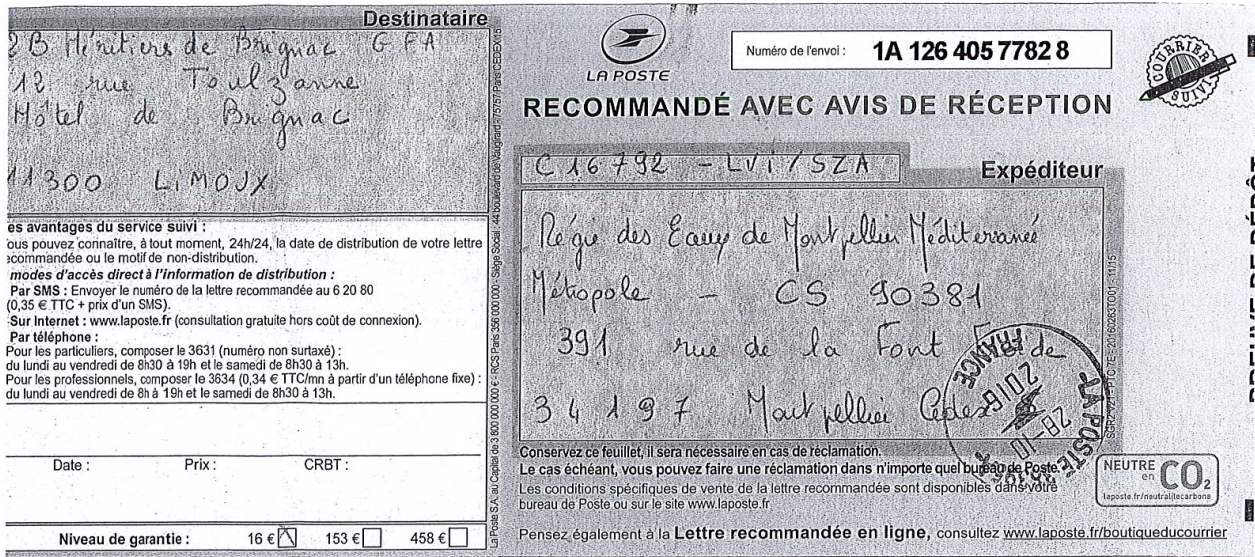 Destinataire
2B Héritiers de Brignac GFA
12 rue Toulzanne
Hôtel de Brignac
11300 LIMOUX
es avantages du service suivi :
ous pouvez connaître, à tout moment, 24h/24, la date de distribution de votre lettre
ecommandée ou le motif de non-distribution.
modes d'accès direct à l'information de distribution :
Par SMS : Envoyer le numéro de la lettre recommandée au 6 20 80
(0,35 € TTC + prix d'un SMS).
Sur Internet : www.laposte.fr (consultation gratuite hors coût de connexion).
Par téléphone :
Pour les particuliers, composer le 3631 (numéro non surtaxé) :
du lundi au vendredi de 8h30 à 19h et le samedi de 8h30 à 13h.
Pour les professionnels, composer le 3634 (0,34 € TTC/mn à partir d'un téléphone fixe) :
du lundi au vendredi de 8h à 19h et le samedi de 8h30 à 13h.
Date : Prix : CRBT :
Niveau de garantie : 16 € 153 € 458 €
La Poste S.A. au Capital de 3 800 000 000 € - RCS Paris 356 000 000 - Siège Social : 44 boulevard de Vaugirard - 75757 Paris CEDEX 15
LA POSTE
Numéro de l'envoi : 1A 126 405 7782 8
COURRIER SUIVI
RECOMMANDÉ AVEC AVIS DE RÉCEPTION
C 16792 - LVI/SZA
Expéditeur
Régie des Eaux de Montpellier Méditerranée
Métropole - CS 90381
391 rue de la Font
34197 Montpellier Cedex
LA POSTE
28-10
2016
FRANCE
Conservez ce feuillet, il sera nécessaire en cas de réclamation.
Le cas échéant, vous pouvez faire une réclamation dans n'importe quel bureau de Poste.
Les conditions spécifiques de vente de la lettre recommandée sont disponibles dans votre
bureau de Poste ou sur le site www.laposte.fr
Pensez également à la Lettre recommandée en ligne, consultez www.laposte.fr/boutiqueducourrier
NEUTRE en CO2
laposte.fr/neutralitecarbone